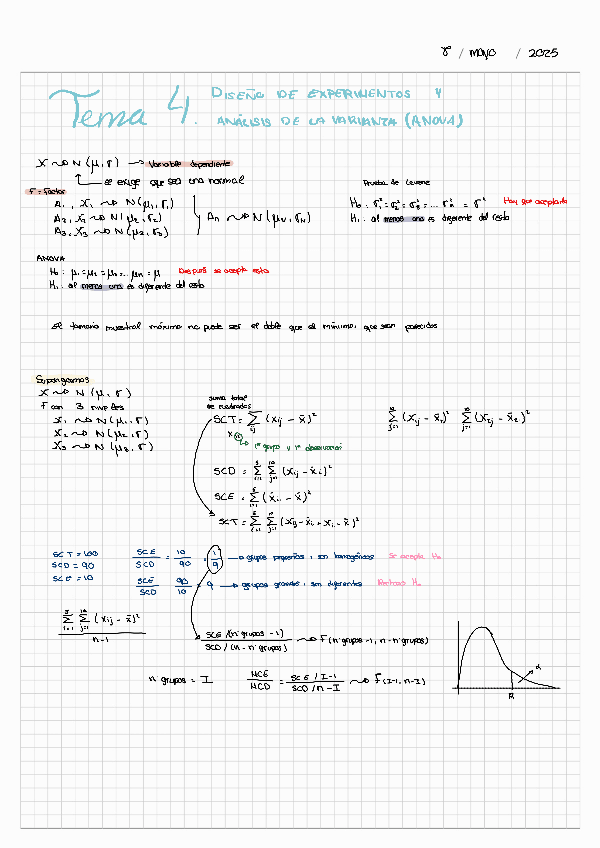 8 / MAYO / 2025
Tema 4. DISEÑO DE EXPERIMENTOS Y
ANÁLISIS DE LA VARIANZA (ANOVA)
X ~> N(μ, σ) -> Variable dependiente
se exige que sea una normal
F = Factor
A₁, X₁ ~> N(μ₁, σ₁)
A₂, X₂ ~> N(μ₂, σ₂)
A₃, X₃ ~> N(μ₃, σ₃)
Aₙ ~> N(μₙ, σₙ)
Prueba de Levene
H₀: σ₁² = σ₂² = σ₃² = ... σₙ² = σ² Hay que aceptarlo
H₁: al menos una es diferente del resto
ANOVA
H₀: μ₁ = μ₂ = μ₃ = ... μₙ = μ Después se acepta esta
H₁: al menos una es diferente del resto
El tamaño muestral máximo no puede ser el doble que el mínimo, que sean parecidos
Supongamos
X ~> N(μ, σ)
F con 3 niveles
X₁ ~> N(μ₁, σ)
X₂ ~> N(μ₂, σ)
X₃ ~> N(μ₃, σ)
suma total
de cuadrados
SCT = Σ (xij - x̄)²
1º grupo y 1ª observación
Σ (x₁j - x̄₁)² Σ (x₂j - x̄₂)²
SCD = Σ Σ (xij - x̄i)²
SCE = Σ (x̄i - x̄)²
SCT = Σ Σ (xij - x̄i + x̄i - x̄)²
SCT = 100
SCD = 90
SCE = 10
SCE / SCD = 10 / 90 = 1/9 -> grupos pequeños, son homogéneos Se acepta H₀
SCE / SCD = 90 / 10 = 9 -> grupos grandes, son diferentes Rechazo H₀
Σ Σ (xij - x̄)² / n-1
SCE / (nº grupos - 1) / SCD / (n - nº grupos) ~> F (nº grupos - 1, n - nº grupos)
nº grupos = I
MCE / MCD = SCE / I-1 / SCD / n-I ~> F (I-1, n-I)
α